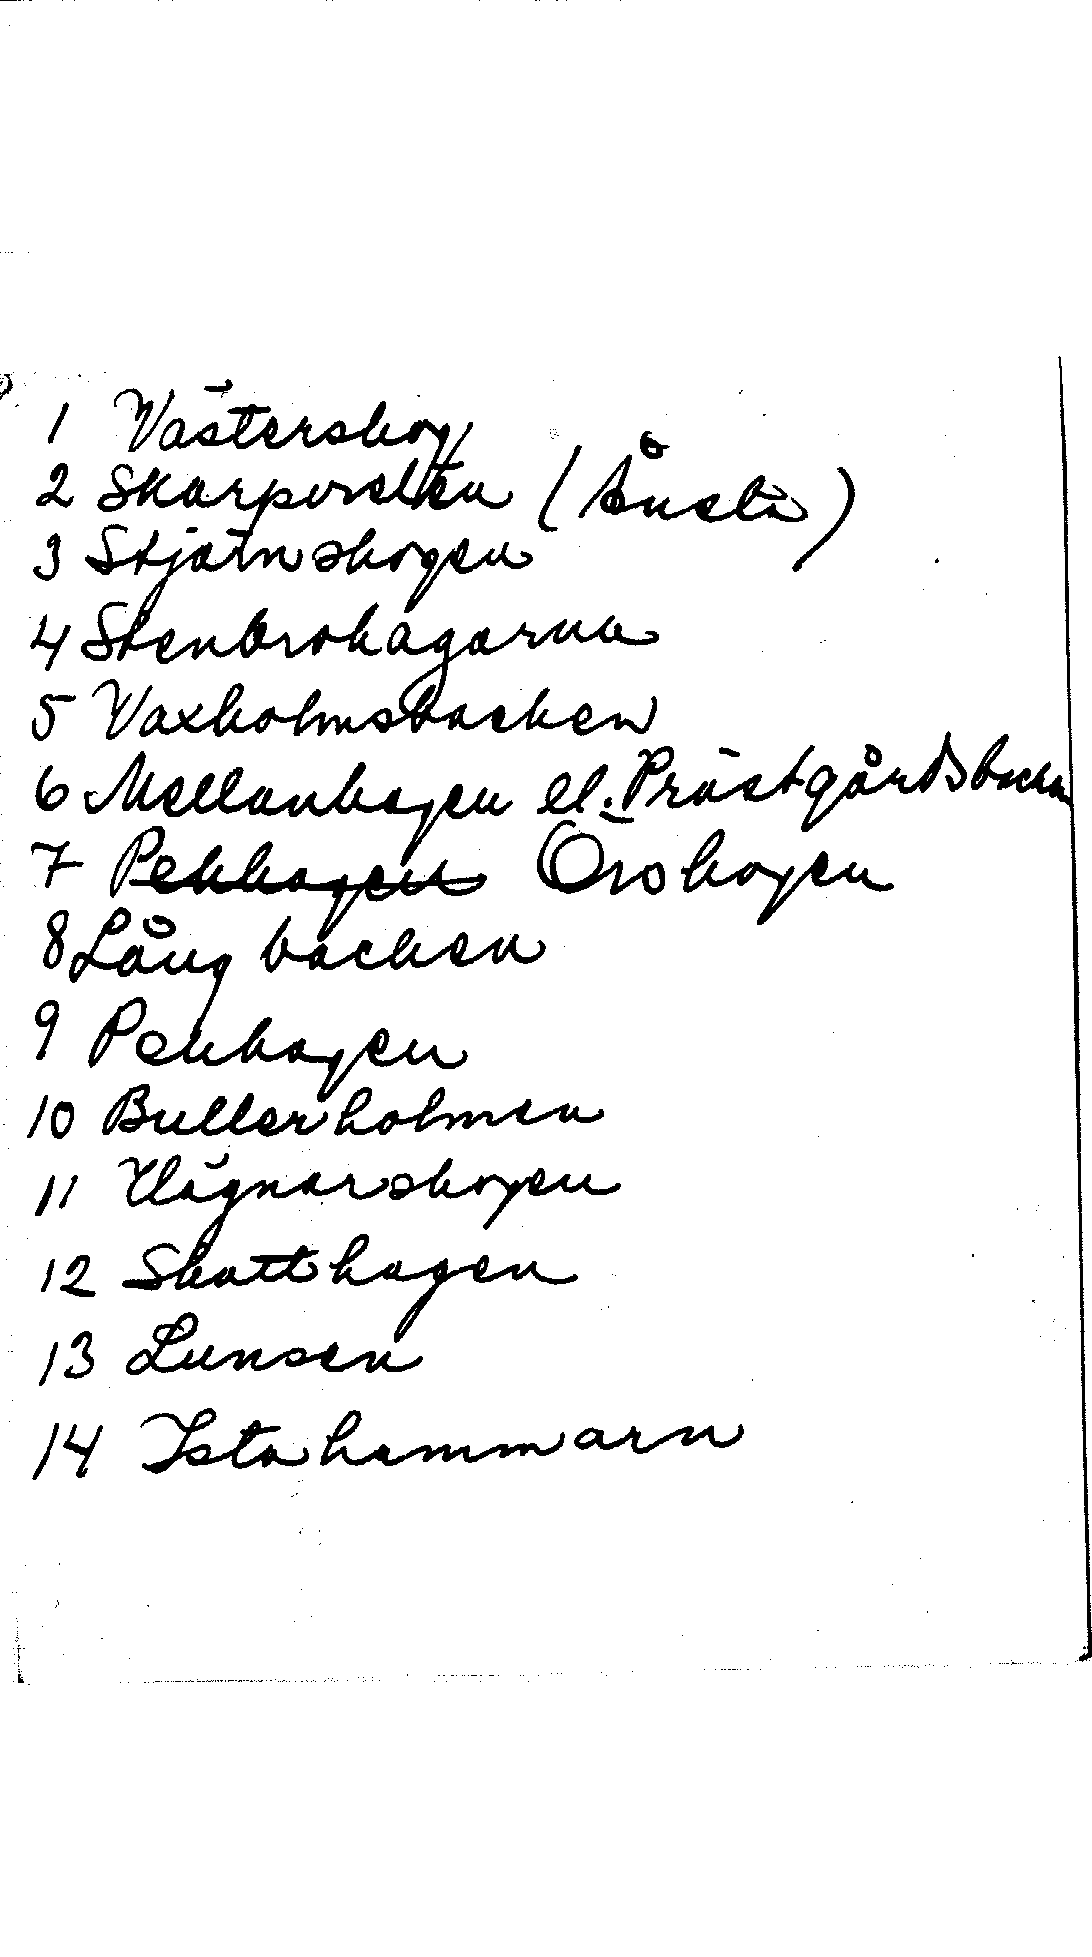 1 Västerskog
2 Skarpvreten (Ånsta)
3 Stjärnskogen
4 Stenbrohagarna
5 Vaxholmsbacken
6 Mellanhagen el. Prästgårdsbacken
7 Pekhagen Öröhagen
8 Lång backen
9 Pekhagen
10 Bullerholmen
11 Vägnarskogen
12 Skatthagen
13 Lunsen
14 Istahammarn